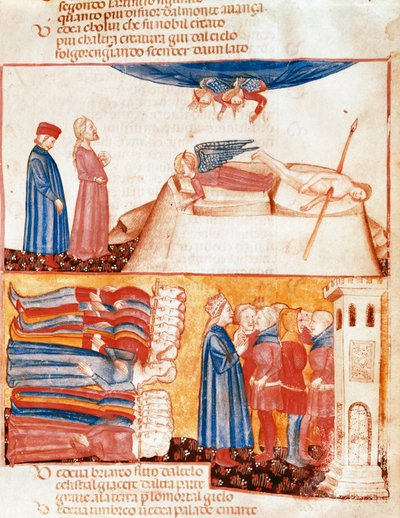 segondo lartificio figurato
quanto piu di fuor dalmonte auança
U edea cholui che fu nobil creato
piu chaltra creatura giu dal cielo
folgorengiando scender daun lato
U edeua briareo fitto dal telo
celestial giacer dalta parte
graue ala terra p lo mortal gielo
U edeua timbreo uedea palade emarte